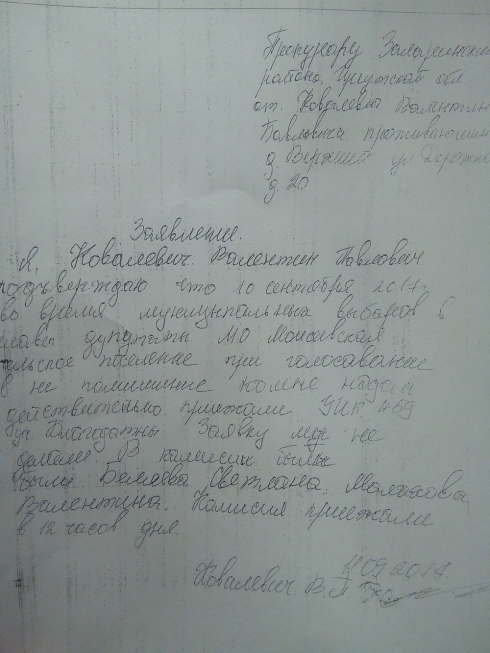 Прокурору Заларинского
района Иркутской обл
от. Ковалевич Валентин
Павловича проживающий
д Верхний ул Дорожн
д. 20
Заявление.
Я, Ковалевич Валентин Павлович
подтверждаю что 10 сентября 2017г.
во время муниципальных выборов в
главы МО Моисеевская
сельское поселение при голосавание
в не помишение ко мне на дом
действительно приежали УИК 469
уч Благодатны Заявку мы не
делали. В камисии были
были Беляева Светлана, Малахова
Валентина. Комисия приежали
в 12 часов дня.
11 09 2017.
Ковалевич. В.П